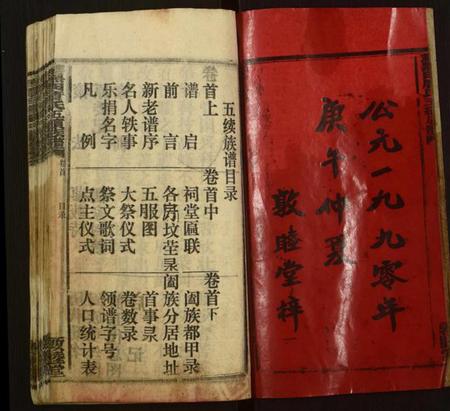 公元一九九零年
庚午仲夏
敦睦堂梓
五续族谱目录
卷首上
谱启
前言
新老谱序
名人轶事
乐捐名字
凡例
卷首中
祠堂匾联
各房坟茔录
五服图
大祭仪式
祭文歌词
点主仪式
卷首下
阖族都甲录
阖族分居地址
首事录
卷数录
领谱字号
人口统计表
卷首
目录